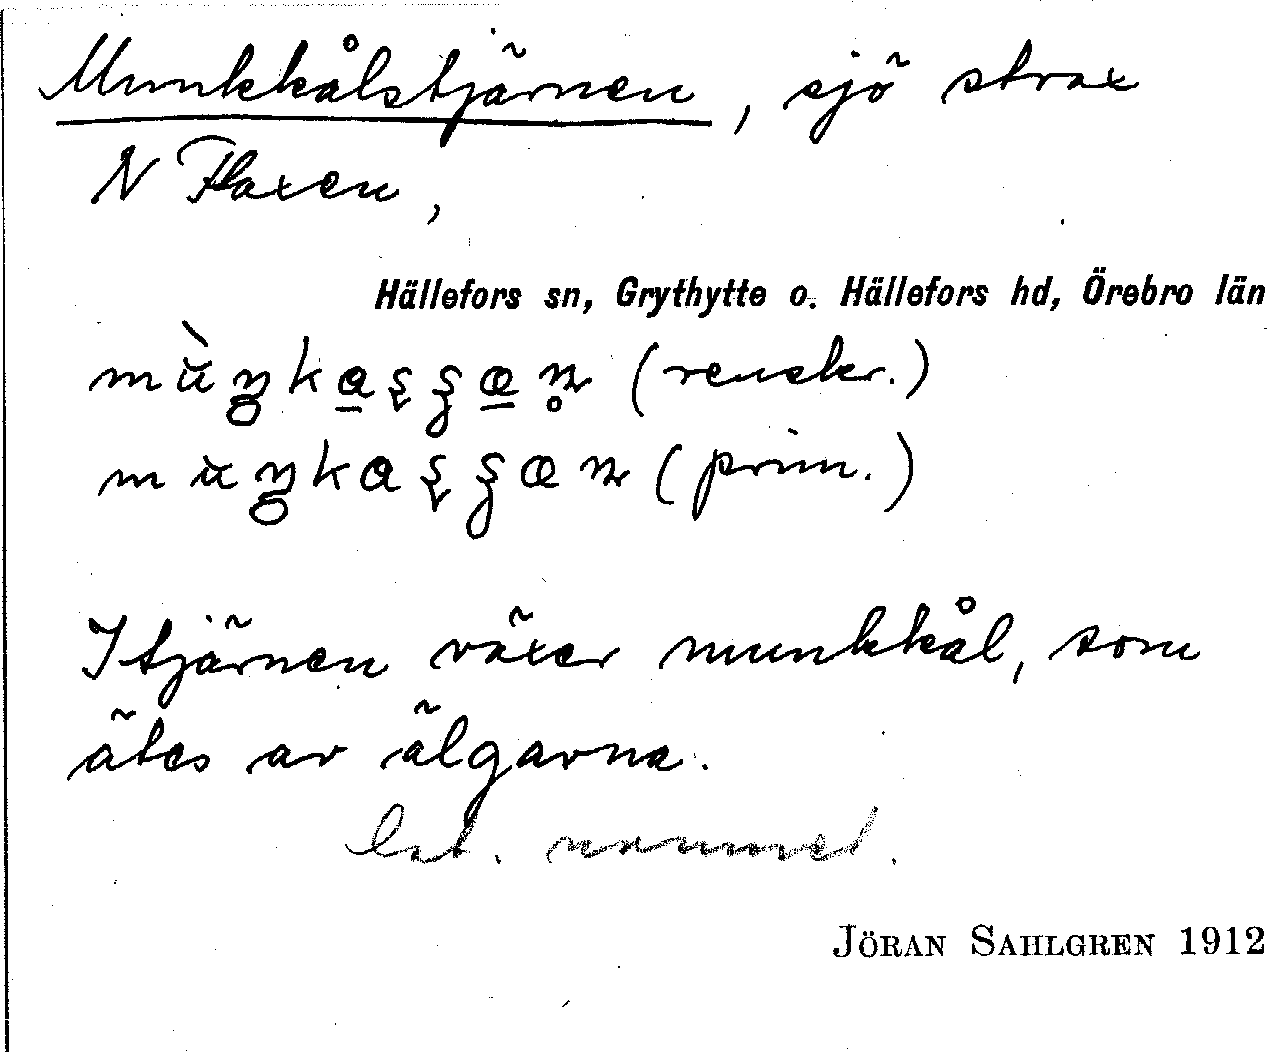 Munkkålstjärnen, sjö strax
N Flaxen,
Hällefors sn, Grythytte o. Hällefors hd, Örebro län
(renskr.)
(prim.)
I tjärnen växer munkkål, som
ätes av älgarna.
JÖRAN SAHLGREN 1912